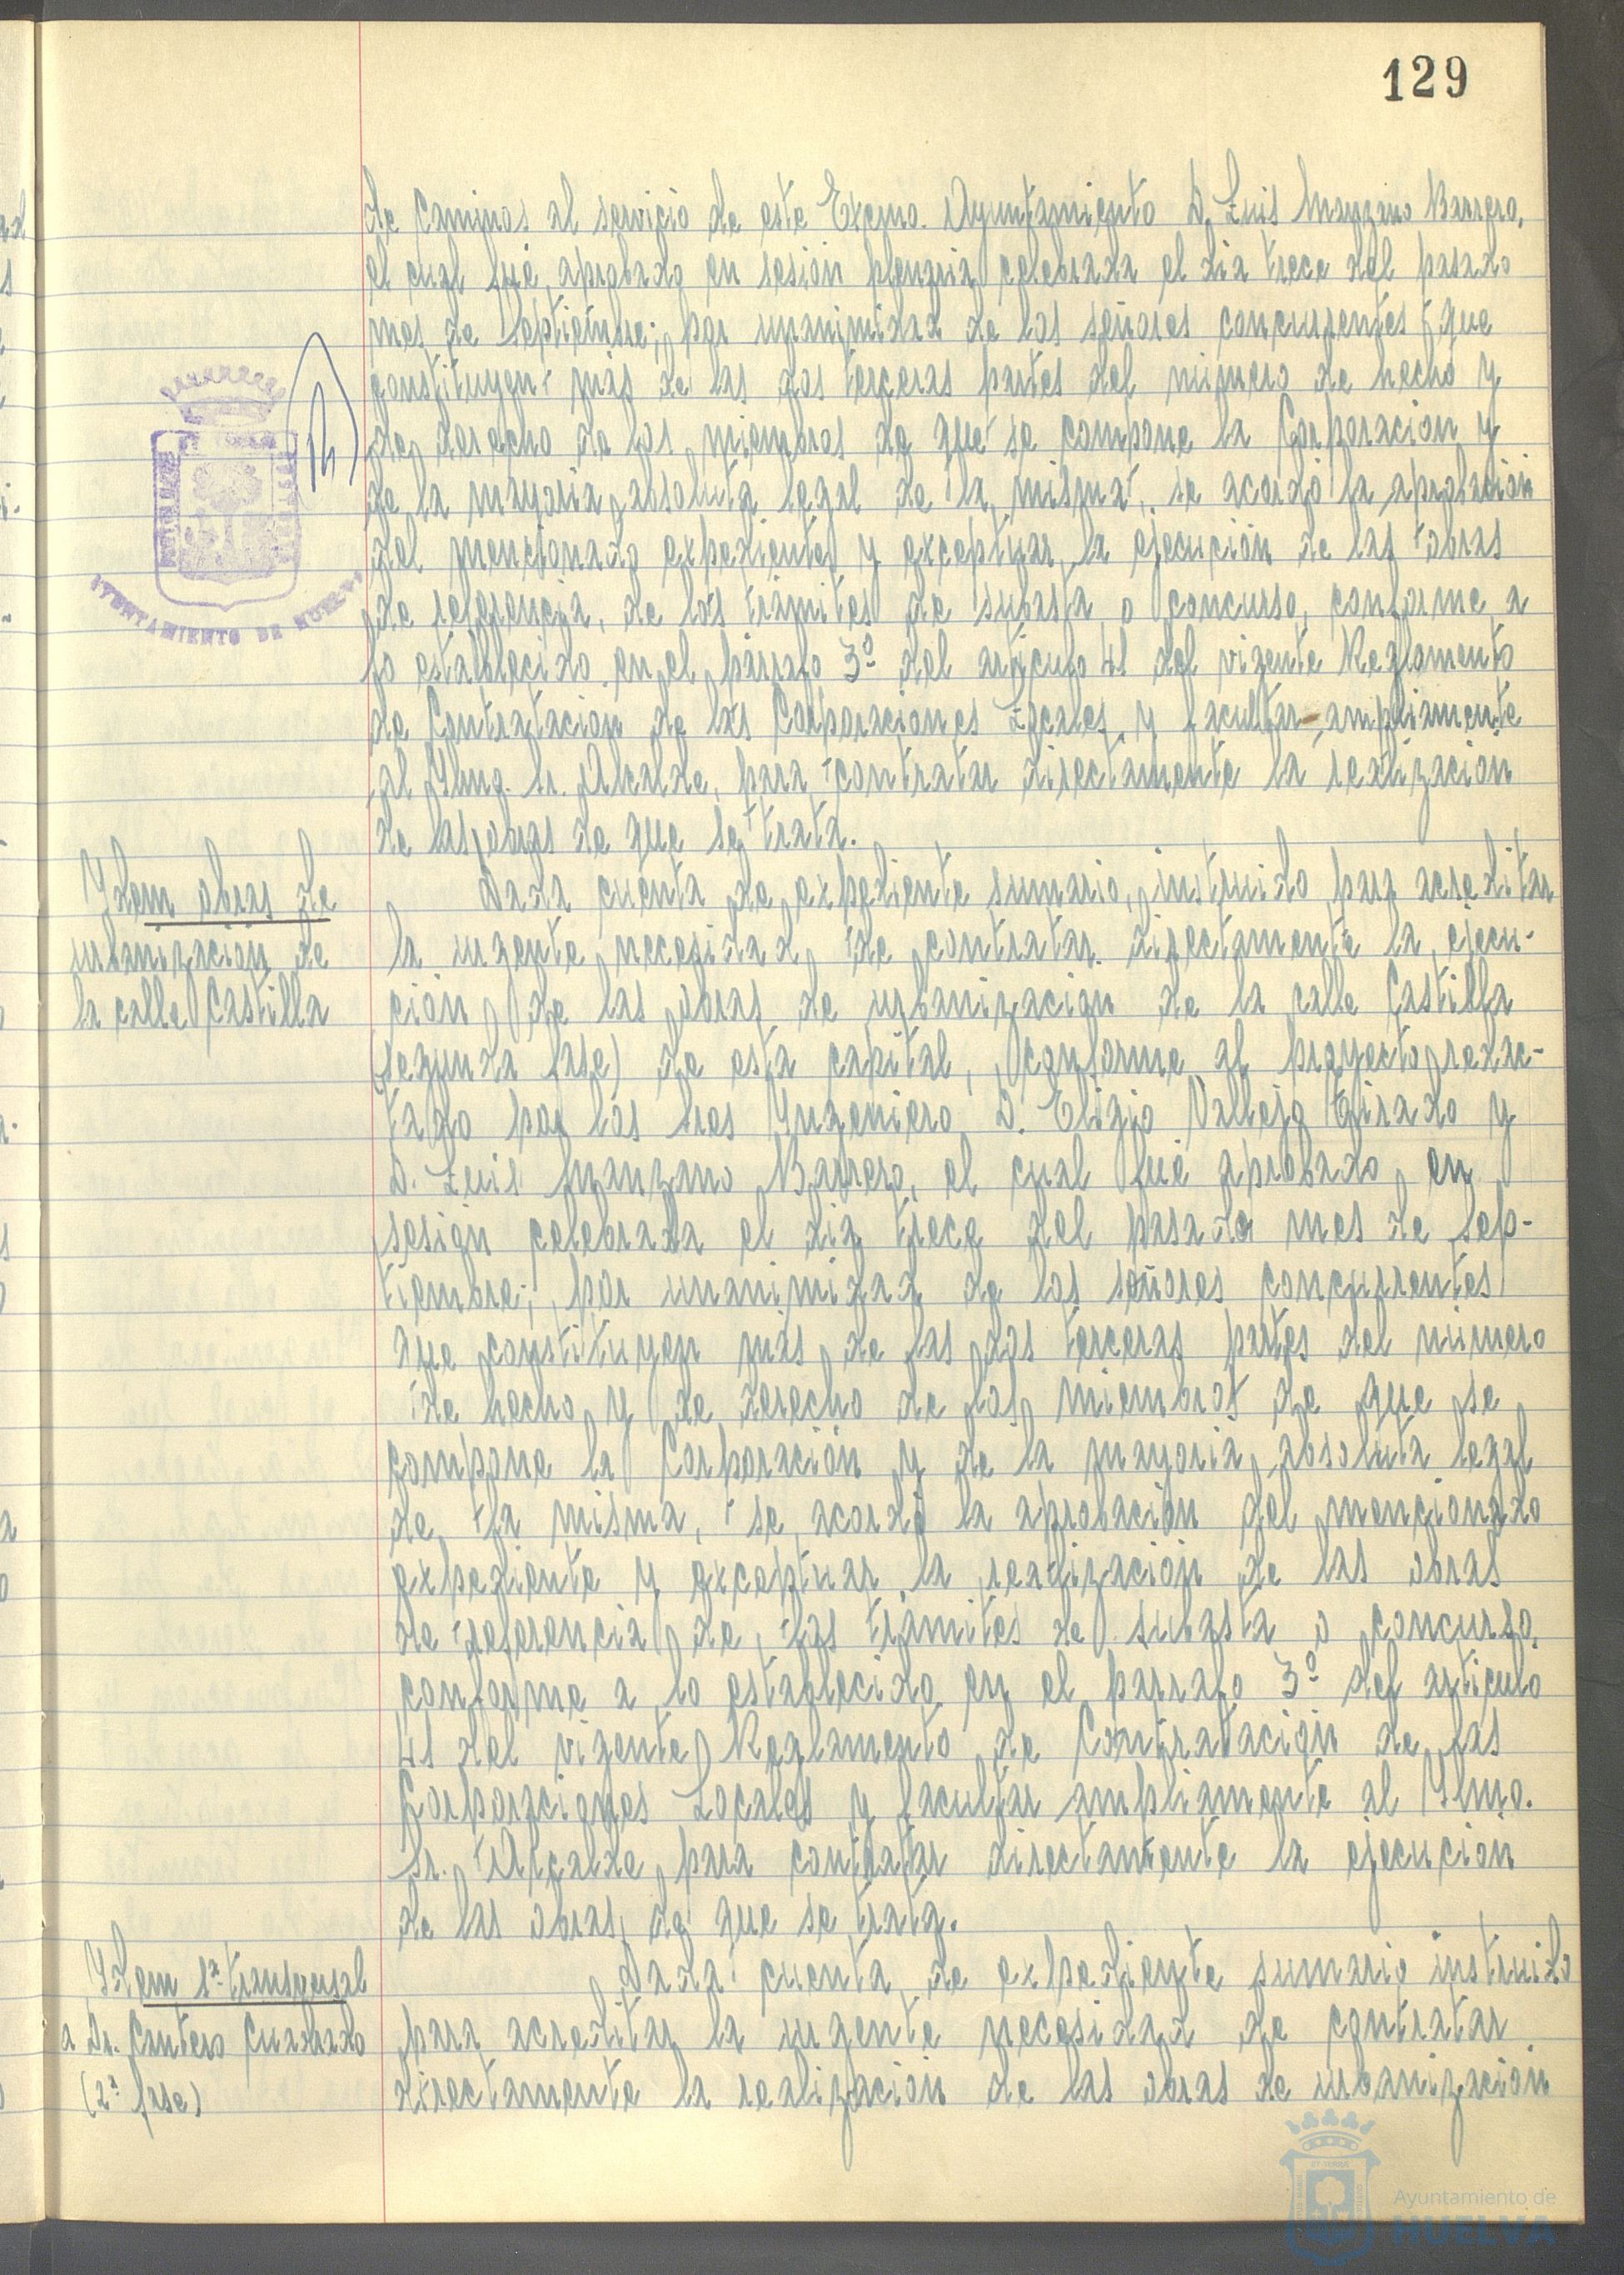 129
de Caminos al servicio de este Excmo. Ayuntamiento D. Luis Manzano Barrero,
el cual fué aprobado en sesión plenaria celebrada el día trece del pasado
mes de Septiembre; por unanimidad de los señores concurrentes que
constituyen más de las dos terceras partes del número de hecho y
de derecho de los miembros de que se compone la Corporación y
de la mayoria absoluta legal de la misma, se acordó la aprobación
del mencionado expediente y exceptuar la ejecución de las obras
de referencia, de los trámites de subasta o concurso, conforme a
lo establecido en el párrafo 3º del artículo 41 del vigente Reglamento
de Contratación de las Corporaciones Locales y facultar ampliamente
al Ylmo. Sr. Alcalde, para contratar directamente la realización
de las obras de que se trata.
AYUNTAMIENTO DE HUELVA
Ydem obras de
urbanización de
la calle Castilla
Dada cuenta de expediente sumario, instruido para acreditar
la urgente necesidad de contratar directamente la ejecu-
ción de las obras de urbanización de la calle Castilla
(segunda fase) de esta capital, conforme al proyecto redac-
tado por los Sres Yngeniero D. Eligio Vallejo Girado y
D. Luis Manzano Barrero, el cual fué aprobado en
sesión celebrada el día trece del pasado mes de Sep-
tiembre; por unanimidad de los señores concurrentes
que constituyen más de las dos terceras partes del número
de hecho y de derecho de los miembros de que se
compone la Corporación y de la mayoría absoluta legal
de la misma, se acordó la aprobación del mencionado
expediente y exceptuar la realización de las obras
de referencia de los trámites de subasta o concurso,
conforme a lo establecido en el párrafo 3º del artículo
41 del vigente Reglamento de Contratación de las
Corporaciones Locales y facultar ampliamente al Ylmo.
Sr. Alcalde para contratar directamente la ejecución
de las obras de que se trata.
Ydem 1ª transversal
a Dr. Cantero Cuadrado
(2ª fase)
Dada cuenta de expediente sumario instruido
para acreditar la urgente necesidad de contratar
directamente la realización de las obras de urbanización
Ayuntamiento de
HUELVA